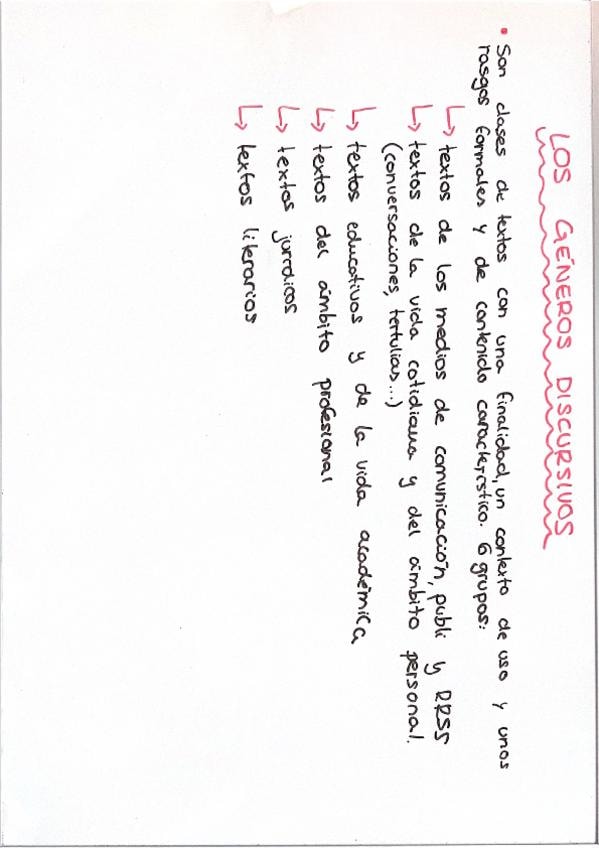 LOS GÉNEROS DISCURSIVOS
• Son clases de textos con una finalidad, un contexto de uso y unos
rasgos formales y de contenido característico. 6 grupos:
↳ textos de los medios de comunicación, publi y RRSS
↳ textos de la vida cotidiana y del ámbito personal.
(conversaciones, tertulias...)
↳ textos educativos y de la vida académica
↳ textos del ámbito profesional
↳ textos jurídicos
↳ textos literarios